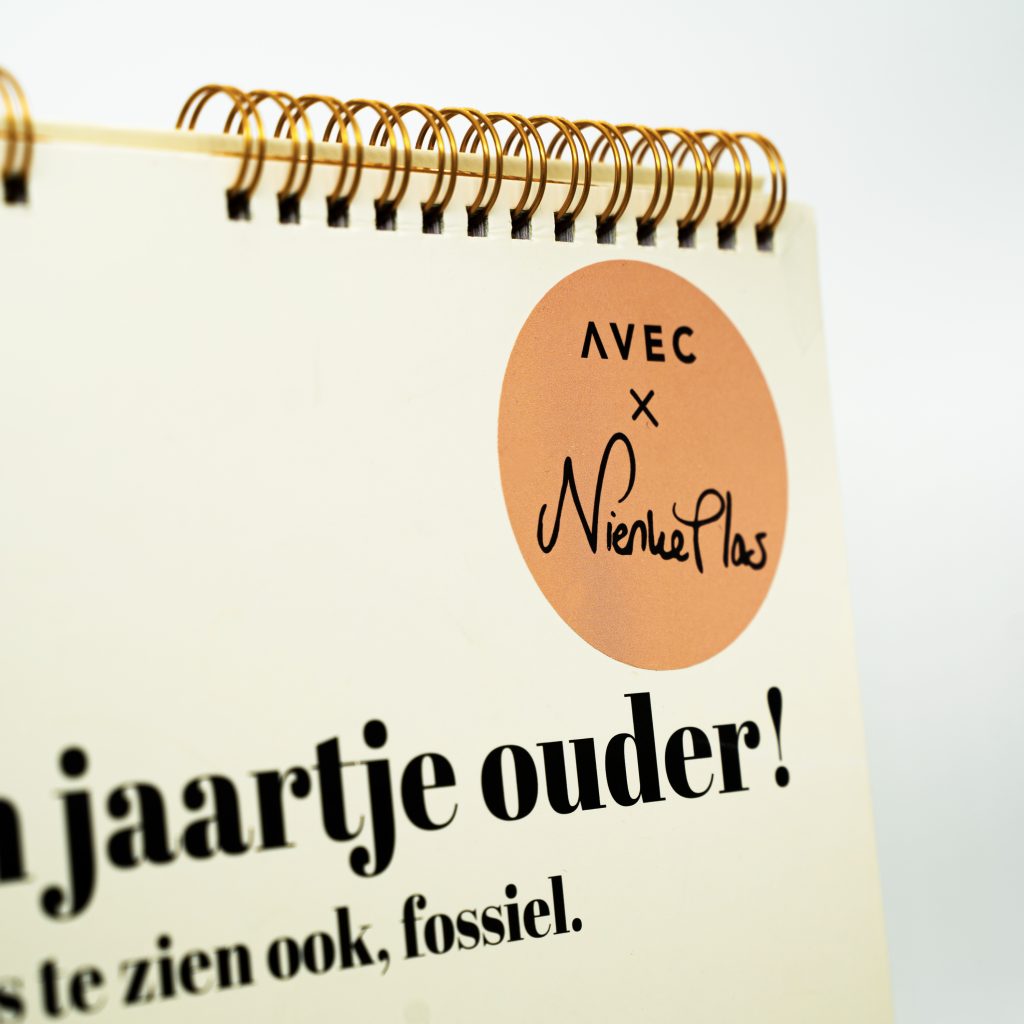 AVEC
X
Nienke Plas
jaartje ouder!
te zien ook, fossiel.